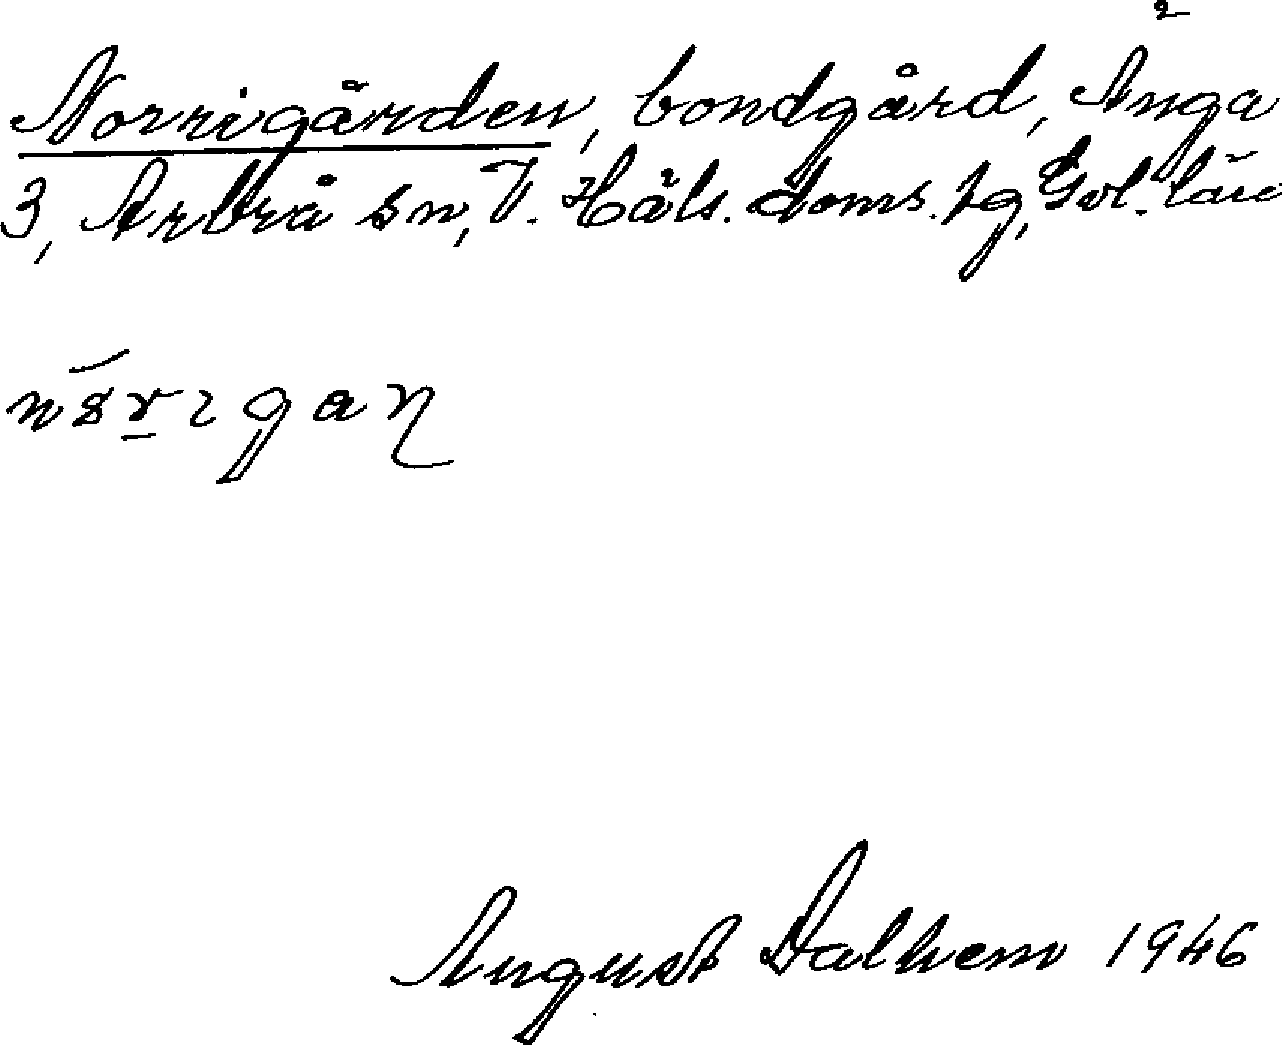 Norrigården, bondgård, Änga
3, Arbrå sn, V. Häls. doms. tg, Gvl. län
August Dalhem 1946